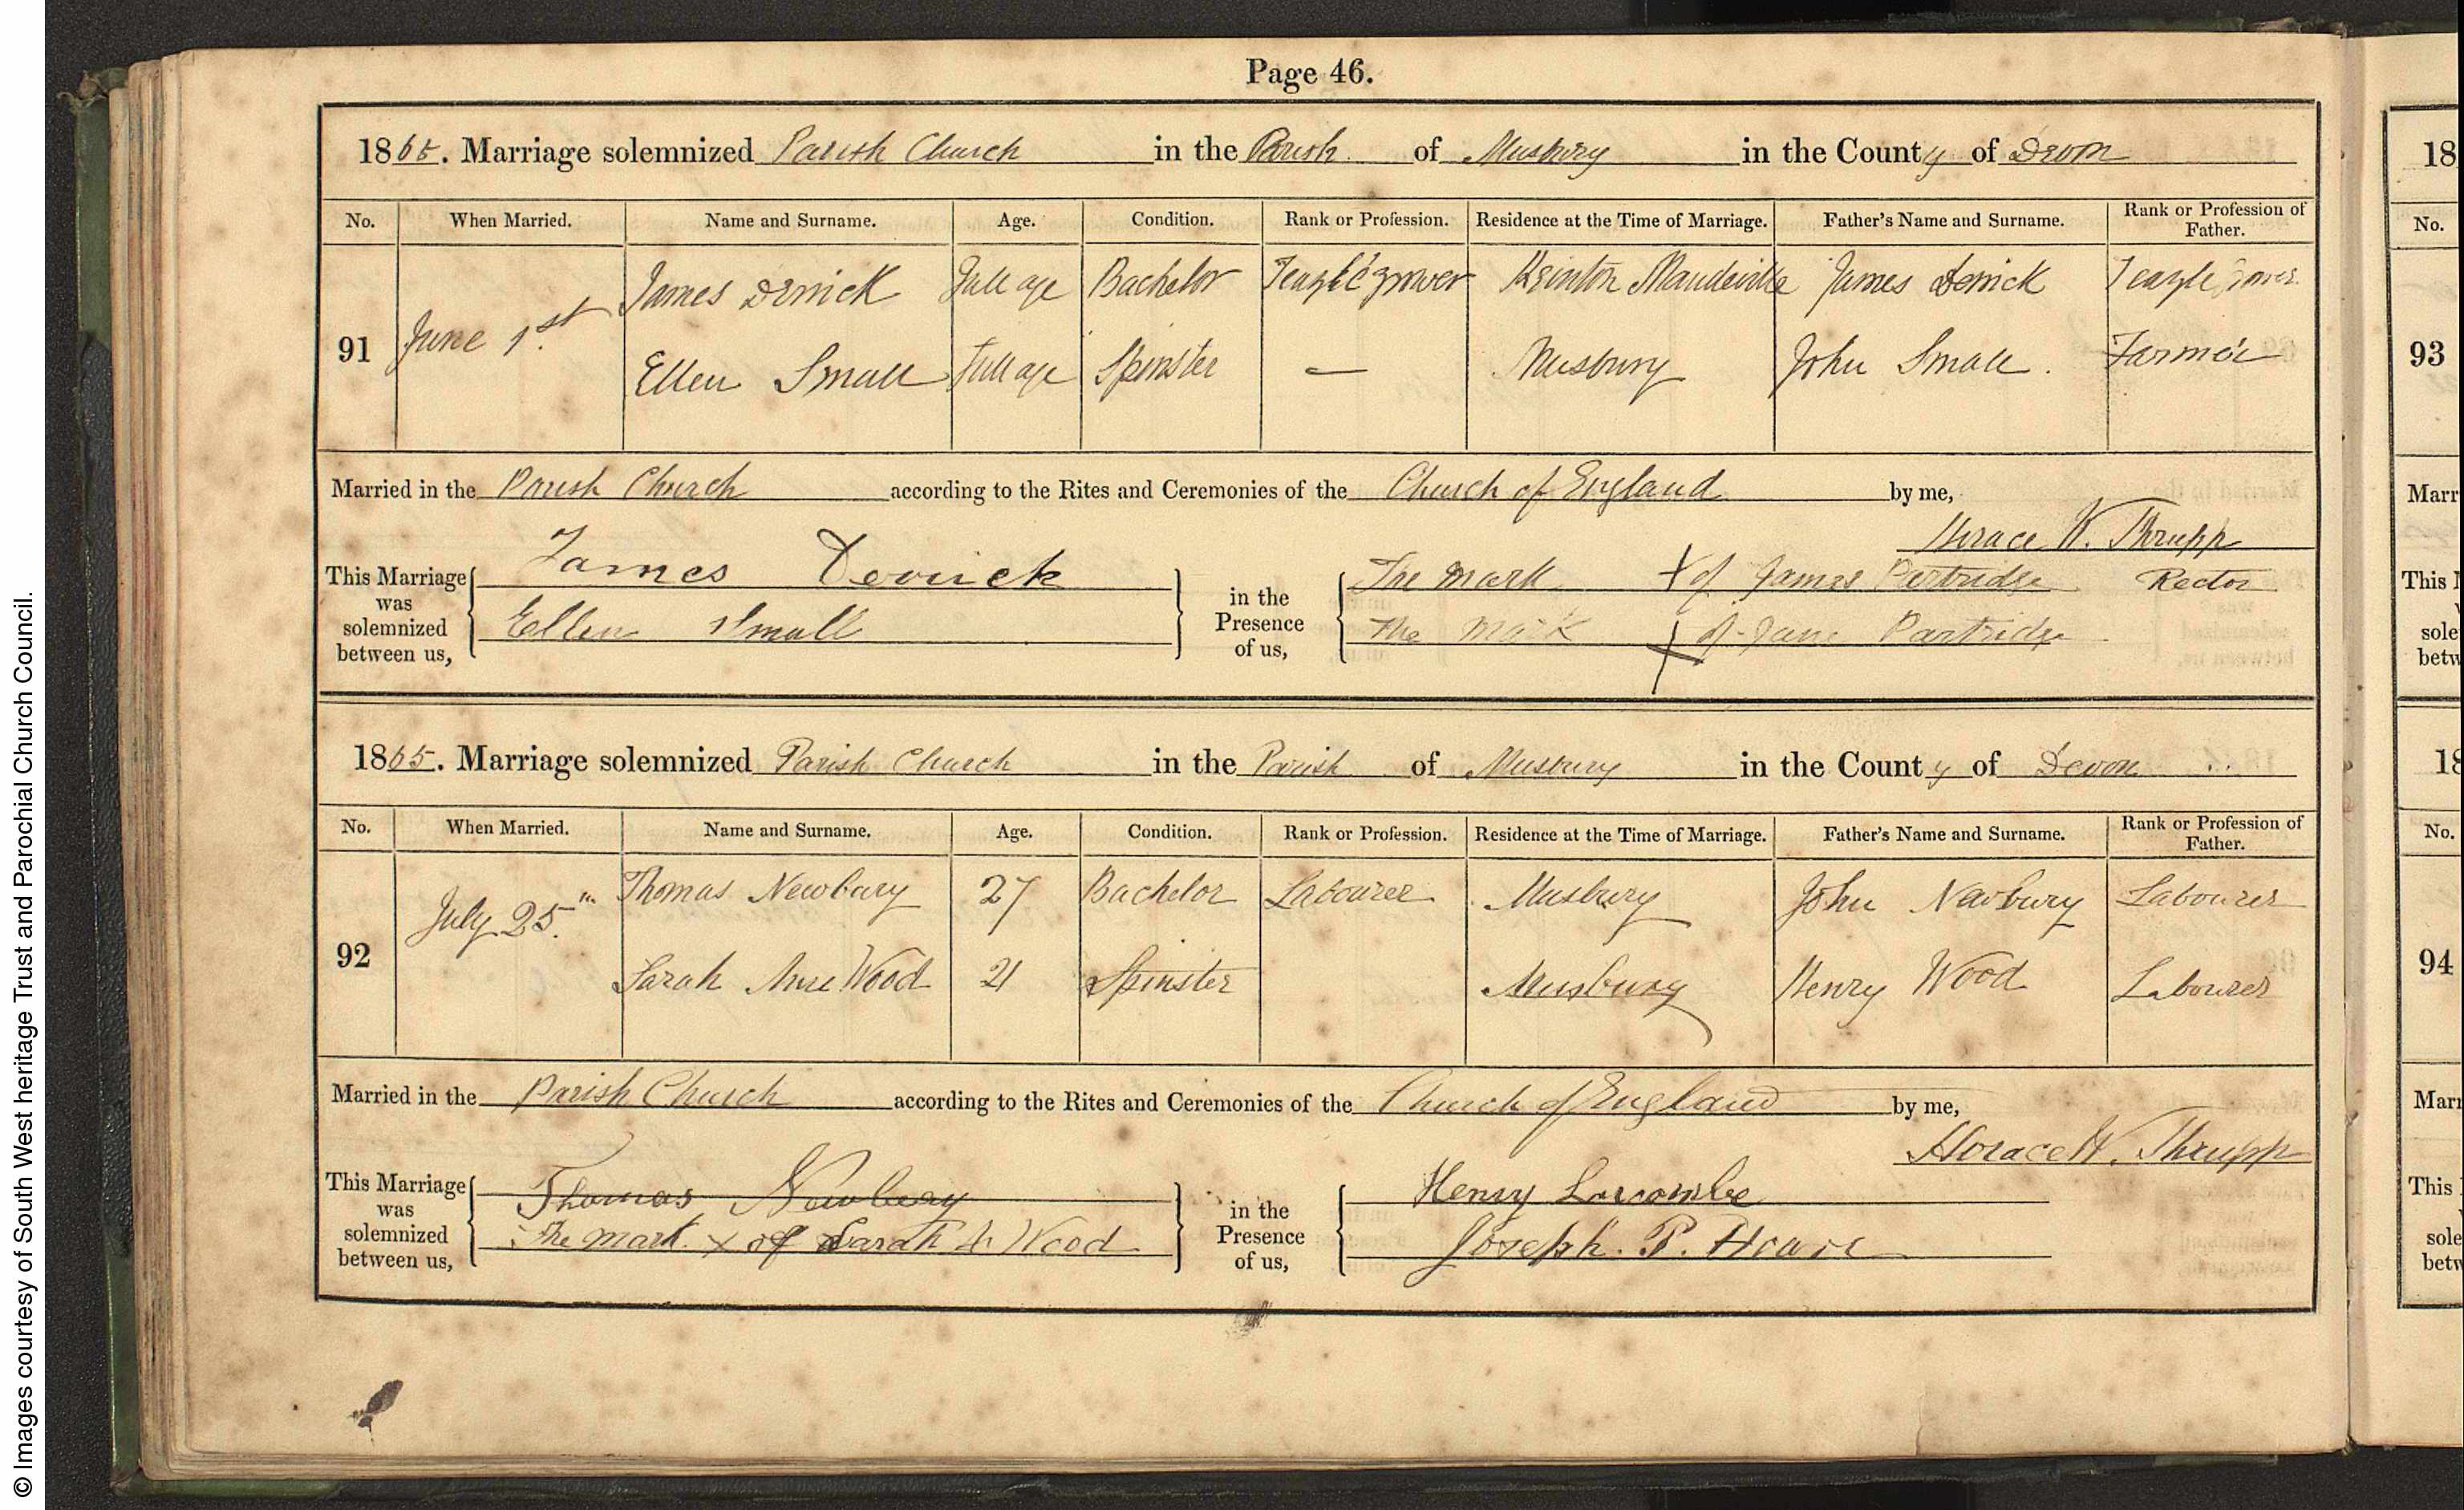 Page 46.
1865. Marriage solemnized Parish Church in the Parish of Musbury in the County of Devon
No. When Married. Name and Surname. Age. Condition. Rank or Profession. Residence at the Time of Marriage. Father's Name and Surname. Rank or Profession of Father.
91 June 1st. James Derrick Full age Bachelor Teazle grower Keinton Mandeville James Derrick Teazle grower
Ellen Small Full age Spinster — Musbury John Small. Farmer
Married in the Parish Church according to the Rites and Ceremonies of the Church of England by me,
Horace W. Thrupp
Rector
This Marriage was solemnized between us,
James Derrick
Ellen Small
in the Presence of us,
The mark X of James Partridge
The Mark X of Jane Partridge
1865. Marriage solemnized Parish Church in the Parish of Musbury in the County of Devon
No. When Married. Name and Surname. Age. Condition. Rank or Profession. Residence at the Time of Marriage. Father's Name and Surname. Rank or Profession of Father.
92 July 25.th Thomas Newbery 27 Bachelor Labourer Musbury John Newbury Labourer
Sarah Anne Wood 21 Spinster Musbury Henry Wood Labourer
Married in the Parish Church according to the Rites and Ceremonies of the Church of England by me,
Horace W. Thrupp
This Marriage was solemnized between us,
Thomas Newbery
The mark X of Sarah A Wood
in the Presence of us,
Henry Larcombe
Joseph. P. Hoare
18
No.
93
Marr
This
sole
betw
18
No.
94
Marr
This
sole
betw
© Images courtesy of South West heritage Trust and Parochial Church Council.